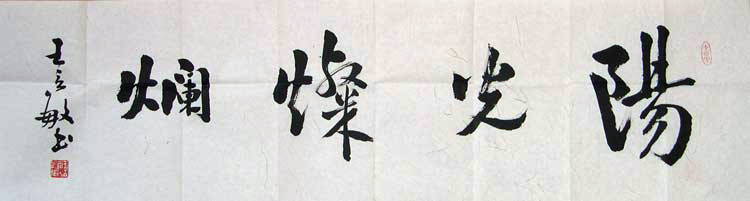 陽光燦爛
王立敏书